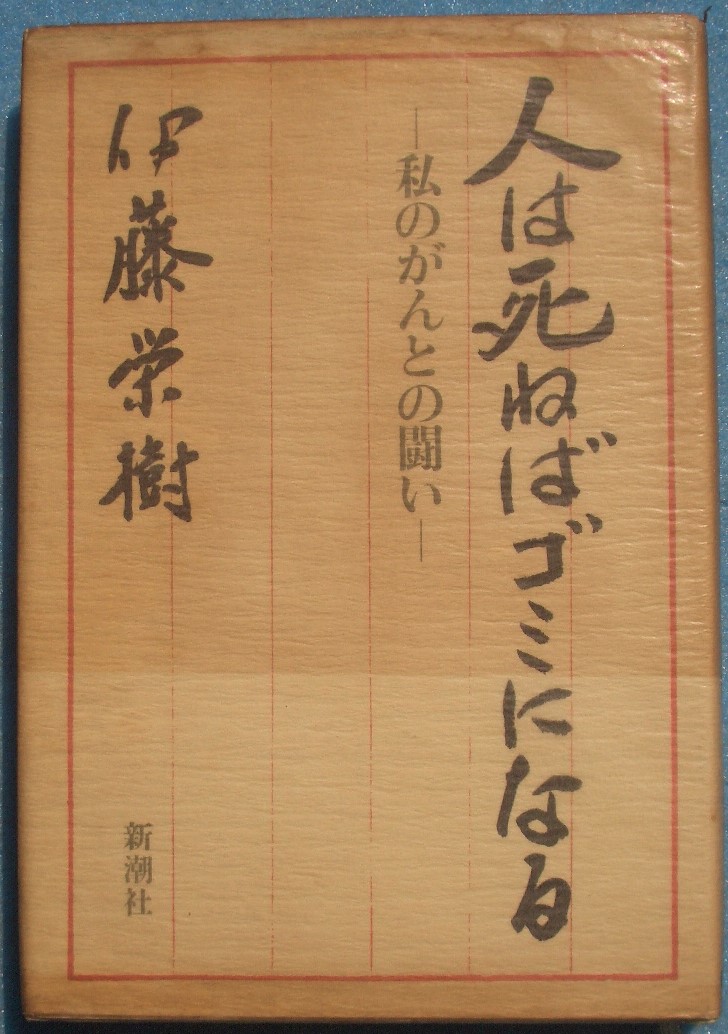 人は死ねばゴミになる
—私のがんとの闘い—
伊藤栄樹
新潮社